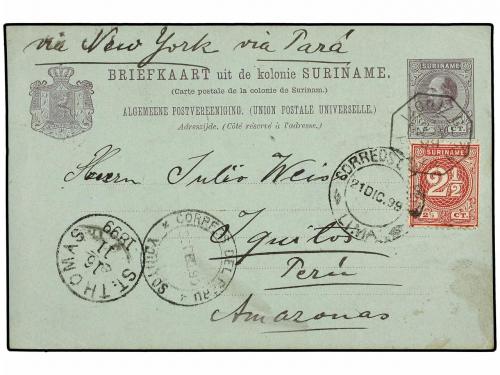 via New York via Pará
BRIEFKAART uit de kolonie SURINAME.
(Carte postale de la colonie de Surinam.)
ALGEMEENE POSTVEREENIGING. (UNION POSTALE UNIVERSELLE.)
Adreszijde. (Côté réservé à l'adresse.)
SURINAME
5 CT.
SURINAME
2½
2½ CT.
Herrn Julio Weiss
Iquitos
Perú
Amazonas
CORREOS
21 DIC. 99
LIMA
CORREOS DEL PERU
ST: THOMAS
16
11
1899